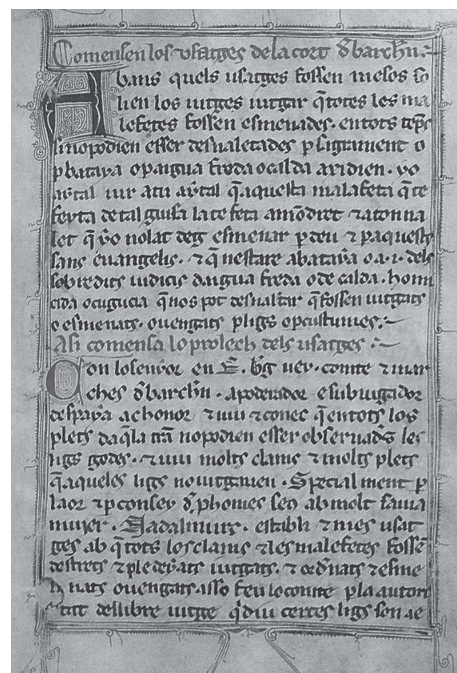 Comensen los vsatges de la cort d barchn.
Abans quels usatges fossen mesos so
lien los iutges iutgar q totes les ma
lefetes fossen esmenades. en tots temps
si no podien esser desualetades p ligrament o
p bataya o p aigua freda o calda aridien. yo
aytal iur a tu aytal q aquesta malafeta q te
feyta de tal guisa la te feta am dret ⁊ a ton na
let q yo no lat deg esmenar p deu ⁊ p aquests
sans euangelis. ⁊ q nestare a bataya o a .i. dels
sobredits iudicis daigua freda o de calda. homi
cida o cugucia q nos pot desualtar q fossen iutgats
o esmenats. o uengats p ligs o p custumes.
Asi comensa lo prolech dels usatges.
Con lo senyor en R. bg uey. comte ⁊ mar
ches d barchn. apoderador e subiugador
despaya ac honor ⁊ uiu ⁊ conec q en tots los
plets daqla tra no podien esser obseruads les
ligs godes. ⁊ uiu molts clams ⁊ molts plets
q aqueles ligs no iutgauen. Special ment p
laor ⁊ p conseyl d phomes seus ab molt sauia
muyer. Na dalmurs. establi ⁊ mes usat
ges ab q tots los clams ⁊ les malefetes fossen
destrets ⁊ pledeyats iutgats. ⁊ ordnats ⁊ esme
nats o uengats asso feu lo comte p la autori
tat del libre iutge q diu certes ligs son ae